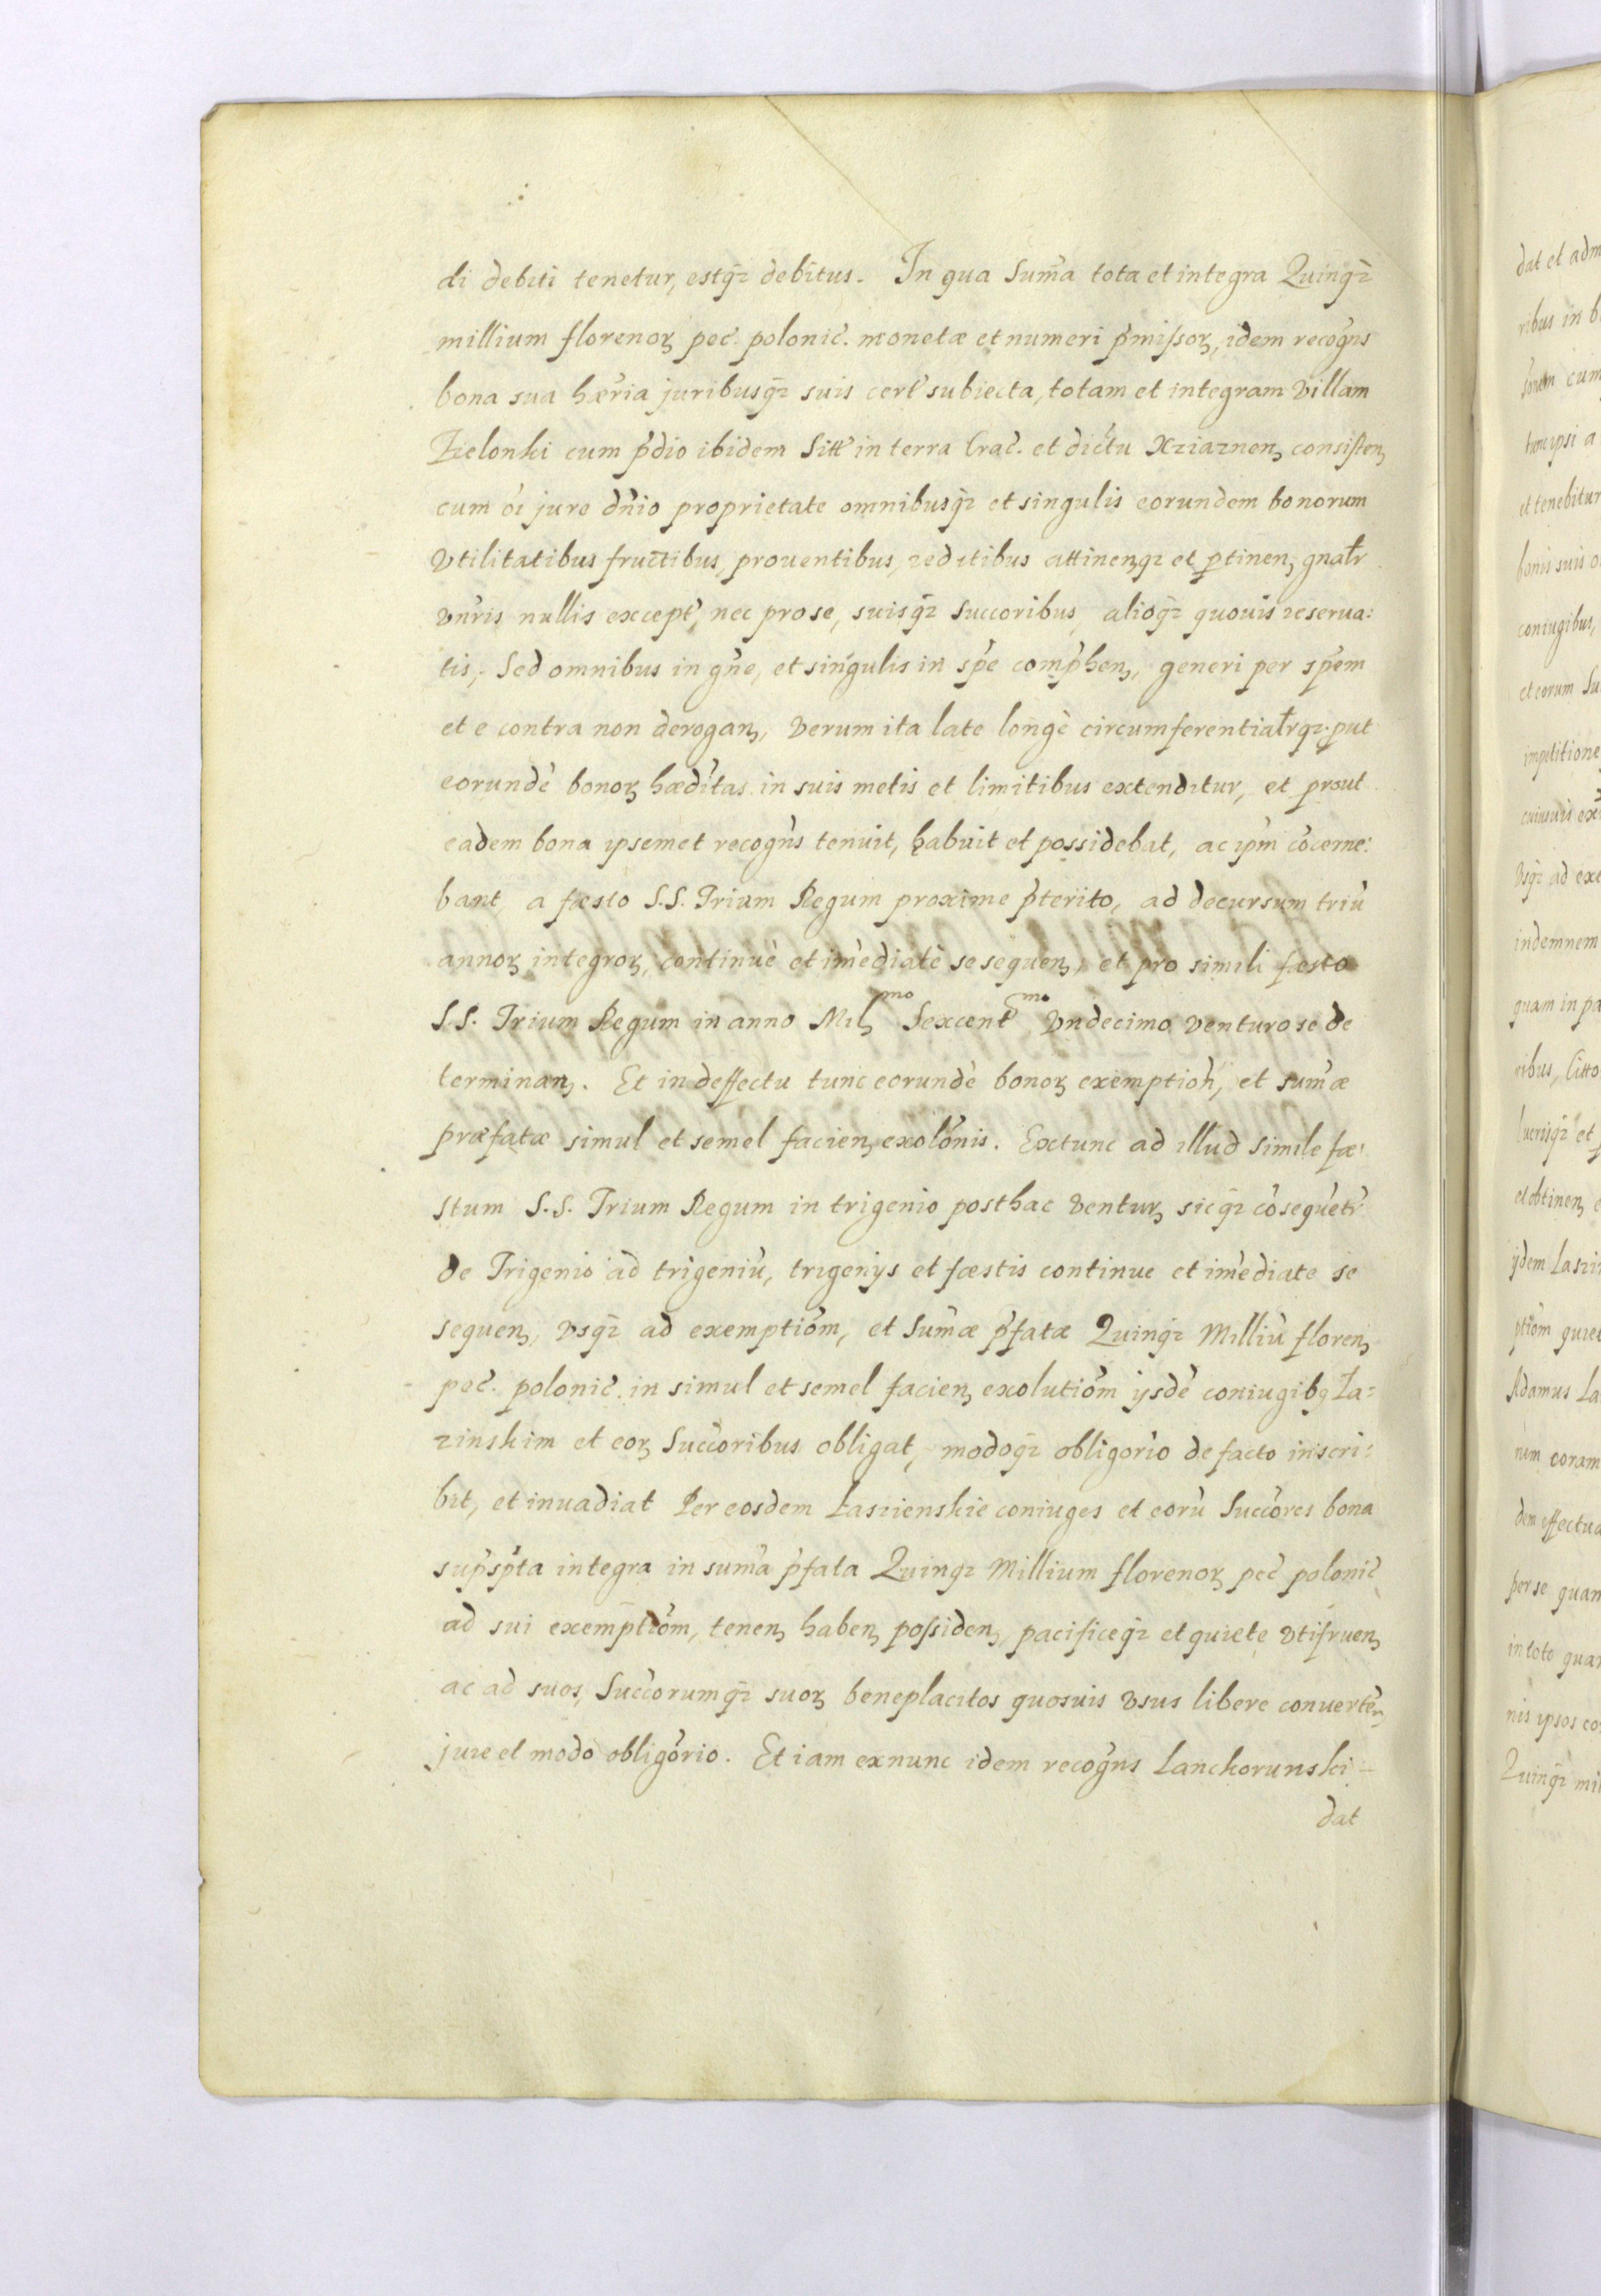 di debiti tenetur, estq̃ debitus. In qua Sum̃a tota et integra Quinq̃
millium florenoꝝ pec̃. polonic̃. monetæ et numeri p̃missoꝝ, idem recog̃ns
bona sua hær̃ia juribusq̃ suis cert̃ subiecta, totam et integram villam
Zielonki cum p̃dio ibidem Sitt̃ in terra Crac̃. et dict̃u Xziaznen̄ consisten̄
cum oĩ jure dñio proprietate omnibusq̃ et singulis eorundem bonorum
vtilitatibus fructibus, prouentibus, reditibus attinen̄qꝫ et ꝑtinen̄, gnalr̃
vnr̃is nullis except̃, nec pro se, suisq̃ Succoribus, alioq̃ quouis reserua:
tis, Sed omnibus in gñe, et singulis in sp̃e comp̃hen̄, generi per sp̃em
et e contra non derogan̄, verum ita late longè circumferentialr̃qꝫ ꝓut
eorundẽ bonoꝝ hæd̃itas in suis metis et limitibus extenditur, et prout
eadem bona ipsemet recog̃ns tenuit, habuit et possidebat, ac ip̃m cõcerne:
bant, a fæsto S.S. Trium Regum proxime p̃terito, ad decursum triũ
annoꝝ integroꝝ, continuè et im̃ediatè se sequen̄, et pro simili fæsto
S.S. Trium Regum in anno Mill̃mo Sexcent̃mo Vndecimo venturo se de
terminan̄. Et in deffectu tunc eorundẽ bonoꝝ exemptioñ, et sum̃æ
præfatæ simul et semel facien̄ exolõnis. Extunc ad illud simile fæ:
stum S.S. Trium Regum in trigenio posthac ventur̄ sicq̃ cõsequet̃r
de Trigenio ad trigeniũ, trigenijs et fæstis continue et im̃ediate se
sequen̄, vsq̃ ad exemptiõm, et Sum̃æ p̃fatæ Quinq̃ Milliũ floren̄
pec̃. polonic̃. in simul et semel facien̄ exolutiõm ijsdẽ coniugibꝫ La=
zinskim et eoꝝ Succ̃oribus obligat, modoq̃ obligor̃io de facto inscri:
bit, et inuadiat Per eosdem Laszienskie coniuges et eorũ Succ̃ores bona
sup̃sp̃ta integra in sum̃a p̃fata Quinqꝫ Millium florenoꝝ pec̃ polonic̃
ad sui exemptiõm, tenen̄ haben̄ possiden̄, pacificeq̃ et quiete vtifruen̄
ac ad suos, Succ̃orumq̃ suoꝝ beneplacitos quosuis vsus libere conuerten̄,
jure et modo obligor̃io. Et iam exnunc idem recog̃ns Lanckorunski
dat